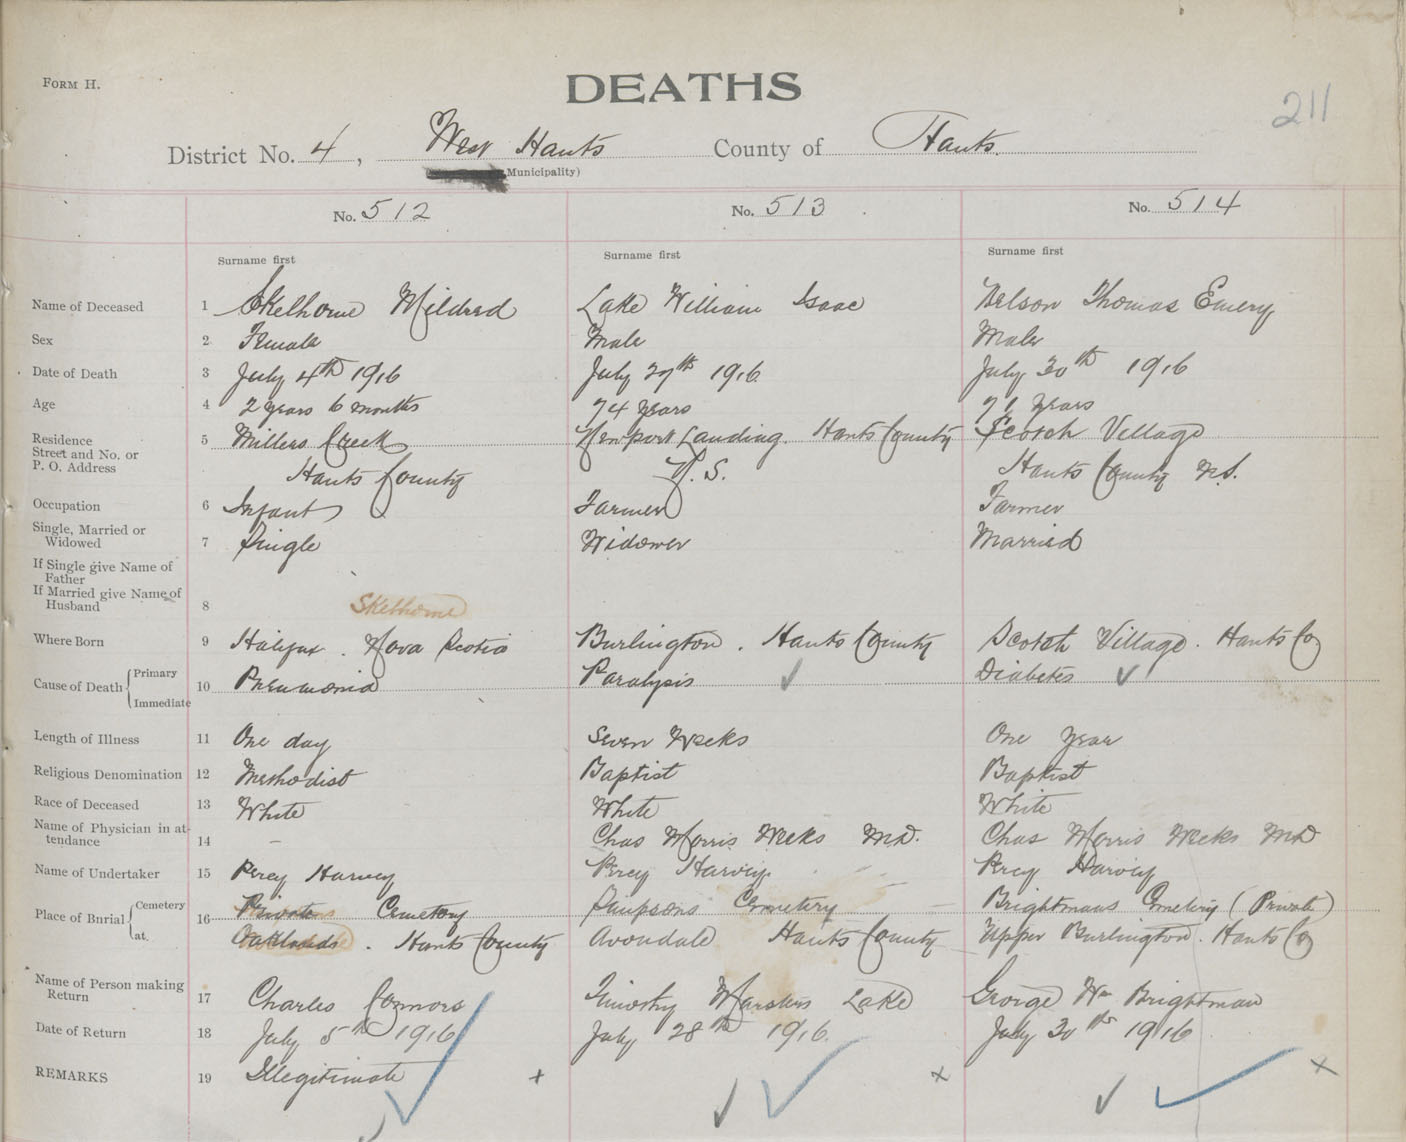 Form H.
DEATHS
211
District No. 4, West Hants County of Hants.
Municipality)
No. 512 No. 513 No. 514
Surname first Surname first Surname first
Name of Deceased 1 Skelhorne Mildred Lake William Isaac Nelson Thomas Emery
Sex 2 Female Male Male
Date of Death 3 July 4th 1916 July 27th 1916 July 30th 1916
Age 4 2 years 6 months 74 years years
Residence 5 Millers Creek Newport Landing. Hants County Scotch Village
Street and No. or
P. O. Address Hants County N.S. Hants County N.S.
Occupation 6 Infant Farmer Farmer
Single, Married or
Widowed 7 Single Widower Married
If Single give Name of
Father
If Married give Name of
Husband 8 Skelhorne
Where Born 9 Halifax. Nova Scotia Burlington. Hants County Scotch Village. Hants Co
Cause of Death Primary
10 Pneumonia Paralysis Diabetes
Immediate
Length of Illness 11 One day Seven Weeks One year
Religious Denomination 12 Methodist Baptist Baptist
Race of Deceased 13 White White White
Name of Physician in at-
tendance 14 – Chas Morris Weeks M.D. Chas Morris Weeks MD
Name of Undertaker 15 Percy Harvey Percy Harvey Percy Harvey
Place of Burial Cemetery 16 Private Cemetery Simpsons Cemetery Brightmans Cemetery (Private)
at. Oaklands. Hants County Avondale Hants County Upper Burlington. Hants Co
Name of Person making
Return 17 Charles Connors Timothy Lake George Wm Brightman
Date of Return 18 July 5th 1916 July 28th 1916. July 30th 1916
REMARKS 19 Illegitimate x x x